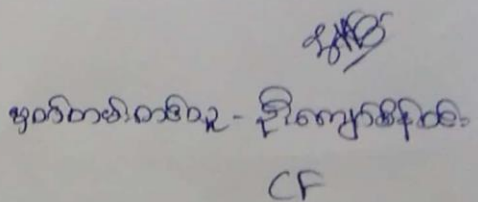 မှတ်တမ်းတင်သူ - ဦးကျော်စိန်ဝင်း
CF